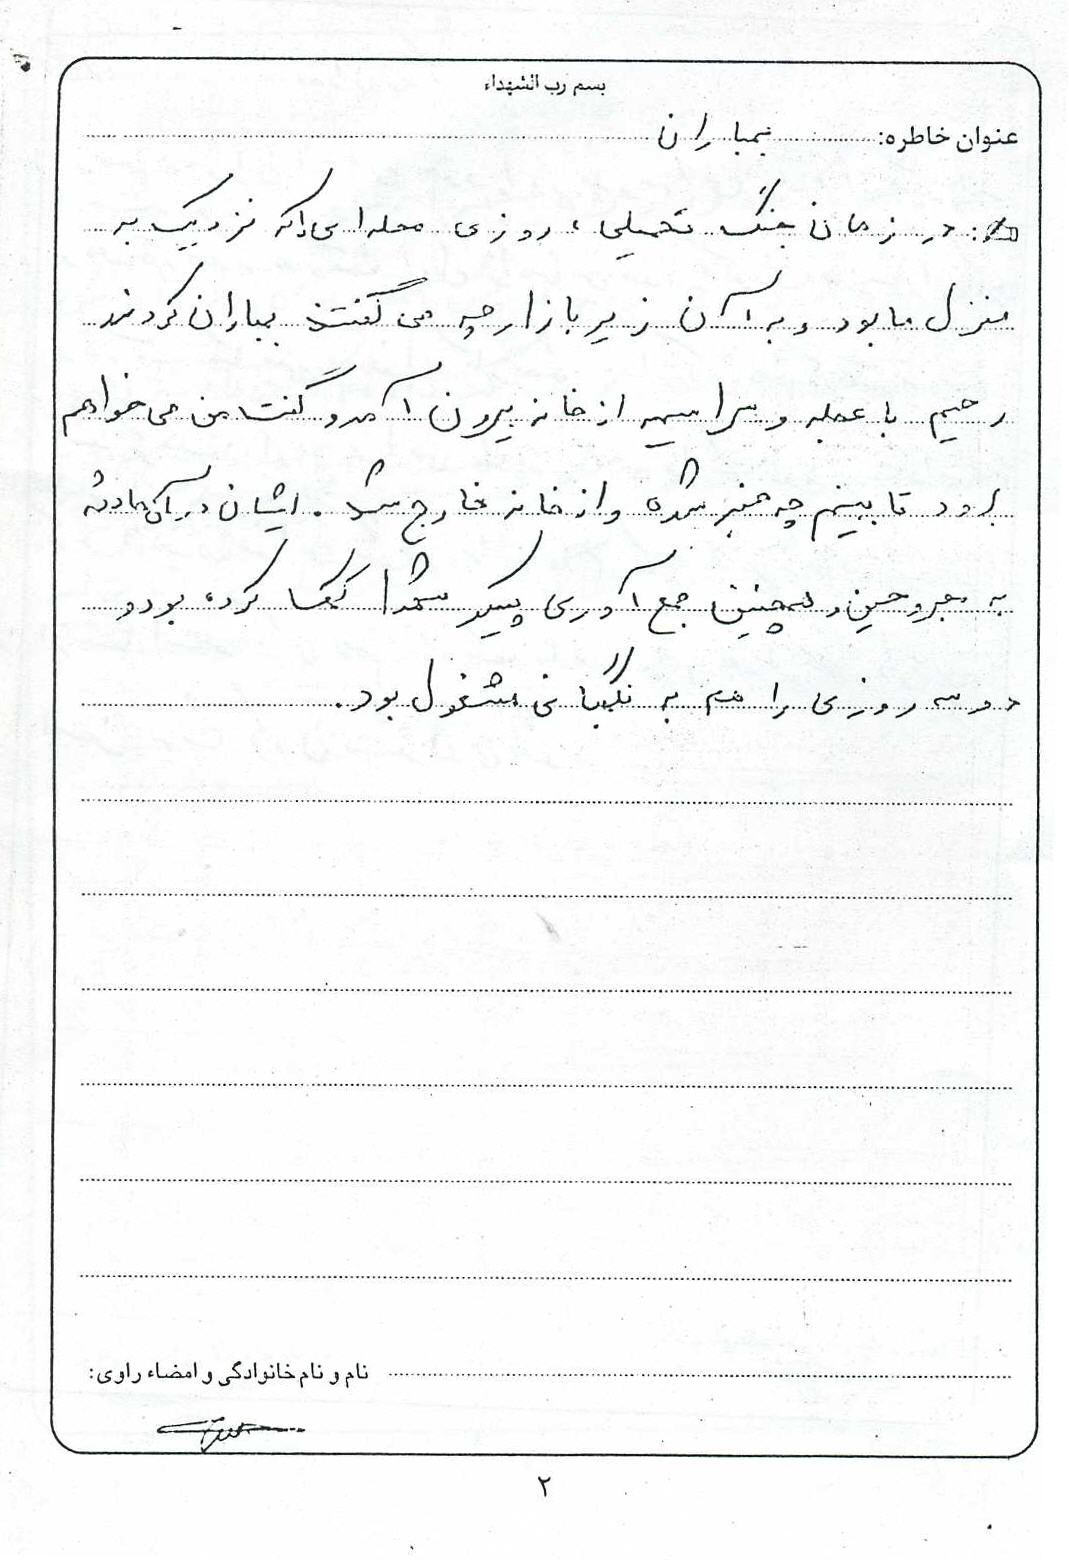 بسم رب الشهداء
عنوان خاطره: بمباران
در زمان جنگ تحمیلی، روزی محله ای را که نزدیک به
منزل ما بود و به آن زیر بازارچه می گفتند بمباران کردند
رحیم با عجله و سراسیمه از خانه بیرون آمد و گفت من می خواهم
بروم تا ببینم چه خبر شده و از خانه خارج شد. ایشان در آن حادثه
به مجروحین و همچنین جمع آوری پیکر شهدا کمک کرده بود و
دو سه روزی را هم به نگهبانی مشغول بود.
نام و نام خانوادگی و امضاء راوی:
۲